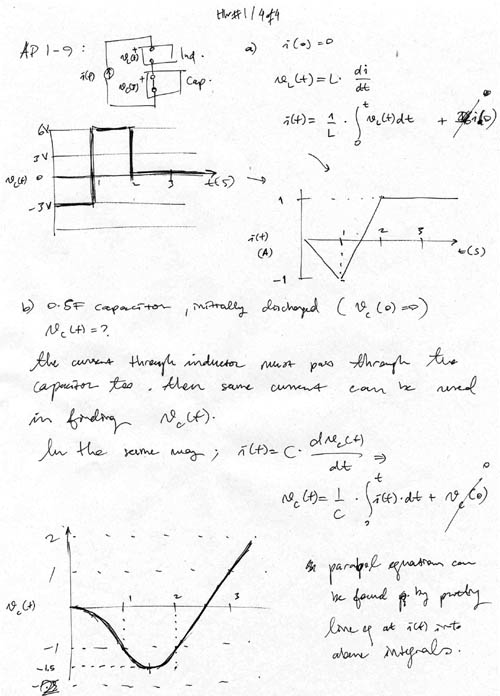 HW#1 / 4 of 4
AP 1-9 :
a) i(0) = 0
+ Ind.
i(t)
+ Cap.
v_L(t) = L · di/dt
i(t) = 1/L · ∫₀ᵗ v_L(t) dt + i(0) 0
6V
3V
0
-3V
1 2 3 t(s)
1
i(t)
(A)
-1
1 2 3 t(s)
b) 0.5F capacitor, initially discharged ( v_c(0) = 0 )
v_c(t) = ?
the current through inductor must pass through the
capacitor too. then same current can be used
in finding v_c(t).
In the same way; i(t) = C · dv_c(t)/dt ⇒
v_c(t) = 1/C · ∫₀ᵗ i(t) · dt + v_c(0) 0
2
1
v_c(t)
-1
-1.5
1 2 3
parabol equation can
be found by putting
line eq of i(t) into
above integrals.